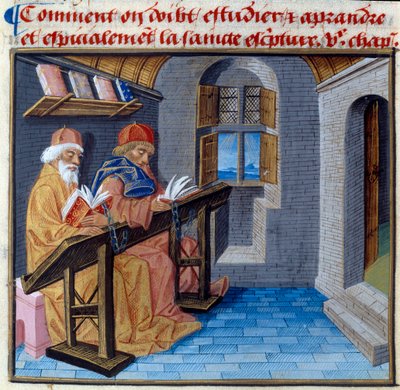 Comment on doibt estudier ⁊ aprandre
et espicialemēt la saincte escpture. Vᵉ. chapˡ.